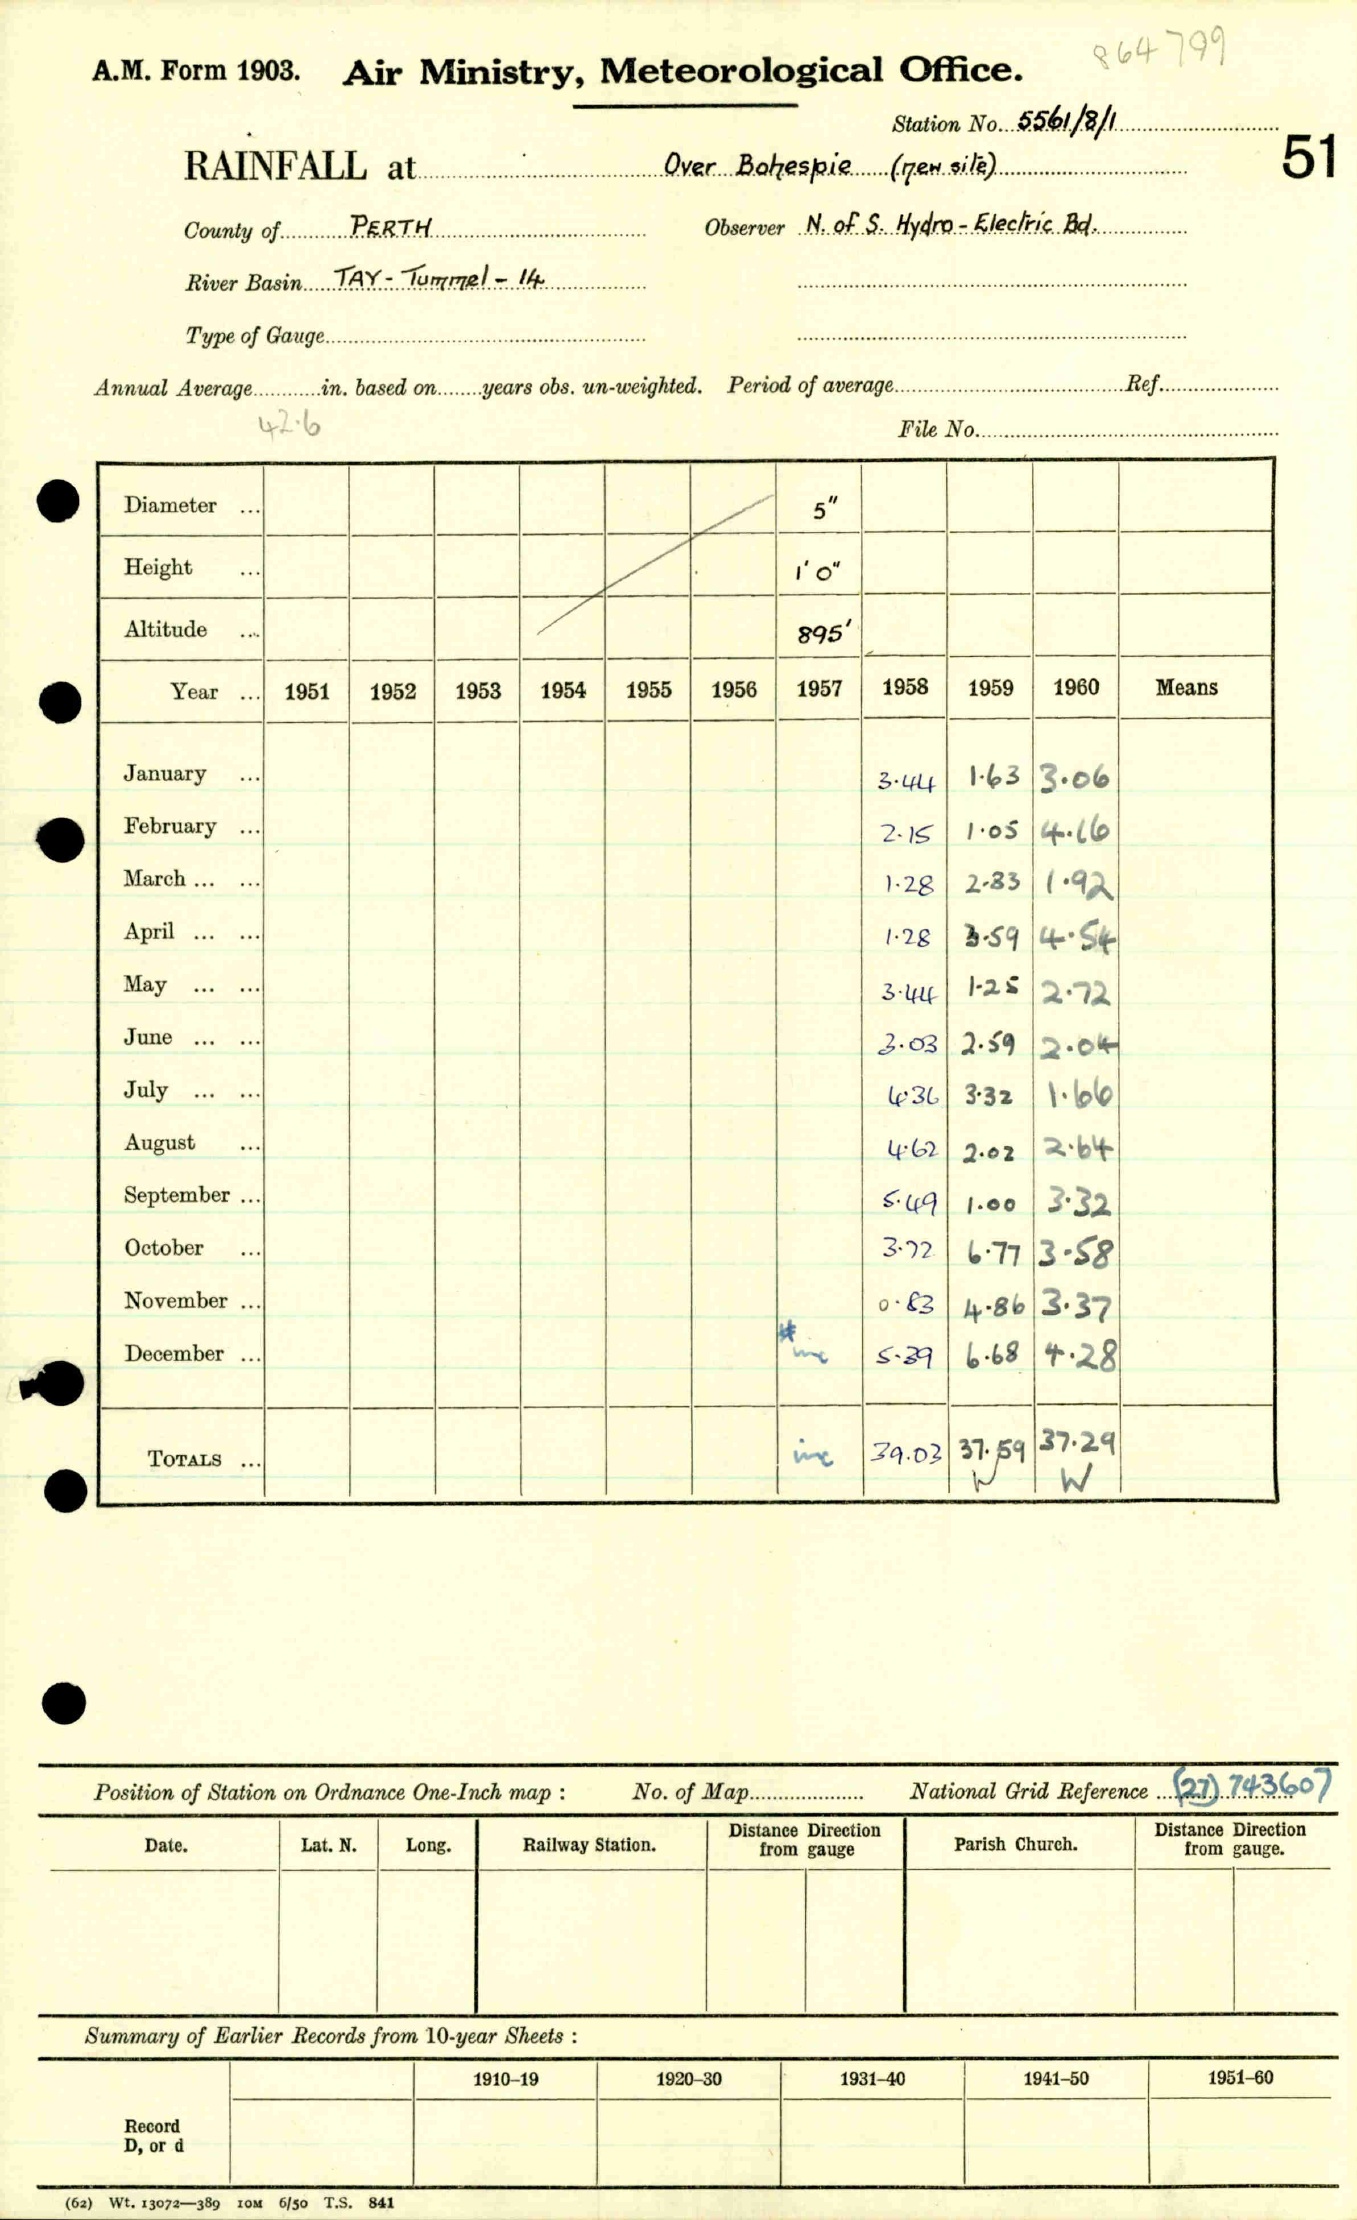 864799
A.M. Form 1903. Air Ministry, Meteorological Office.
Station No. 5561/8/1
51
RAINFALL at Over Bohespie (new site)
County of PERTH Observer N. of S. Hydro-Electric Bd.
River Basin TAY - Tummel - 14
Type of Gauge
Annual Average in. based on years obs. un-weighted. Period of average Ref.
42.6
File No.
Diameter ... 5"
Height ... 1' 0"
Altitude ... 895'
Year ... 1951 1952 1953 1954 1955 1956 1957 1958 1959 1960 Means
January ... 3.44 1.63 3.06
February ... 2.15 1.05 4.16
March ... ... 1.28 2.83 1.92
April ... ... 1.28 3.59 4.54
May ... ... 3.44 1.25 2.72
June ... ... 3.03 2.59 2.04
July ... ... 4.36 3.32 1.66
August ... 4.62 2.02 2.64
September ... 5.49 1.00 3.32
October ... 3.72 6.77 3.58
November ... 0.83 4.86 3.37
December ... # inc 5.39 6.68 4.28
TOTALS ... inc 39.03 37.59 37.29
W W
Position of Station on Ordnance One-Inch map : No. of Map National Grid Reference (27) 743607
Date. Lat. N. Long. Railway Station. Distance from Direction gauge Parish Church. Distance from Direction gauge.
Summary of Earlier Records from 10-year Sheets :
1910–19 1920–30 1931–40 1941–50 1951–60
Record
D, or d
(62) Wt. 13072—389 10M 6/50 T.S. 841